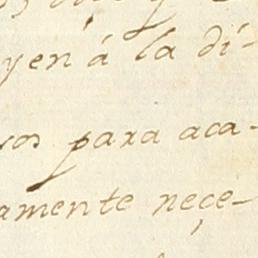 yen á la di-
vos para aca-
amente neçe-